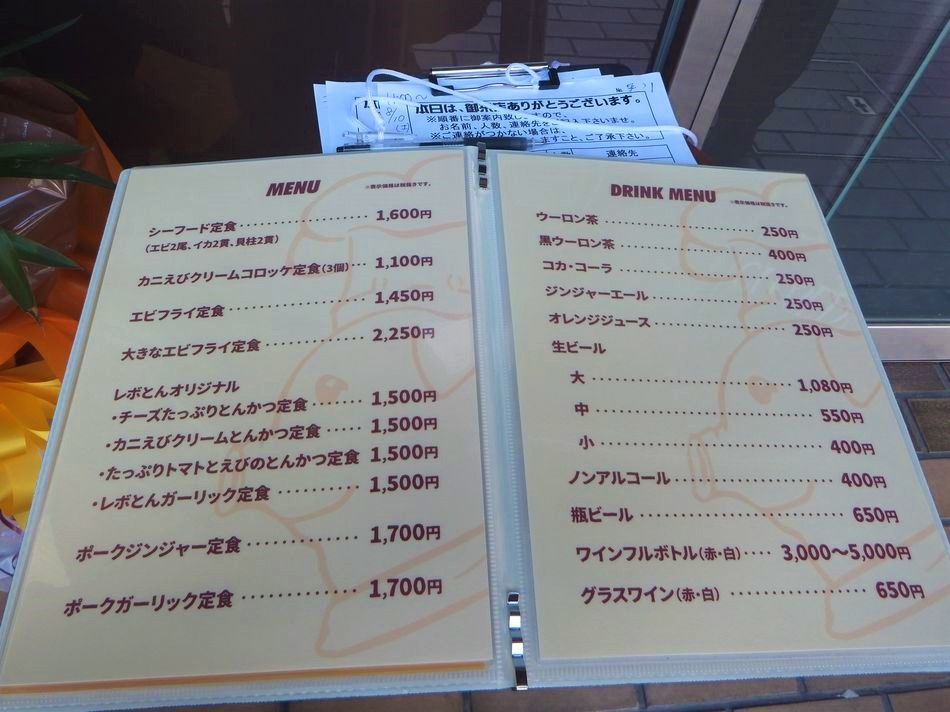 8/10
(土)
本日は、御来店ありがとうございます。
※順番に御案内致しますので、
お名前、人数、連絡先をご記入下さいませ。
※ご連絡がつかない場合は、
すこと、ご了承下さい。
連絡先
MENU
※表示価格は税抜きです。
シーフード定食 1,600円
(エビ2尾、イカ2貫、貝柱2貫)
カニえびクリームコロッケ定食(3個) 1,100円
エビフライ定食 1,450円
大きなエビフライ定食 2,250円
レボとんオリジナル
・チーズたっぷりとんかつ定食 1,500円
・カニえびクリームとんかつ定食 1,500円
・たっぷりトマトとえびのとんかつ定食 1,500円
・レボとんガーリック定食 1,500円
ポークジンジャー定食 1,700円
ポークガーリック定食 1,700円
DRINK MENU
※表示価格は税抜きです。
ウーロン茶 250円
黒ウーロン茶 400円
コカ・コーラ 250円
ジンジャーエール 250円
オレンジジュース 250円
生ビール
大 1,080円
中 550円
小 400円
ノンアルコール 400円
瓶ビール 650円
ワインフルボトル(赤・白) 3,000〜5,000円
グラスワイン(赤・白) 650円